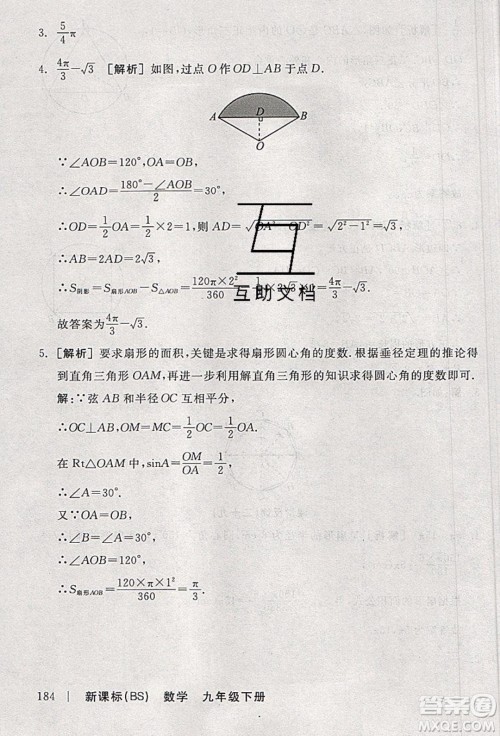 3. 5/4 π
4. 4π/3 − √3 [解析] 如图,过点 O 作 OD⊥AB 于点 D.
A D B
O
∵∠AOB=120°,OA=OB,
∴∠OAD=(180°−∠AOB)/2=30°,
∴OD=1/2 OA=1/2×2=1,则 AD=√(OA²−OD²)=√(2²−1²)=√3,
∴AB=2AD=2√3,
∴S阴影=S扇形AOB−S△AOB=(120π×2²)/360−1/2×2√3×1=4π/3−√3.
互助文档
故答案为4π/3−√3.
5. [解析] 要求扇形的面积,关键是求得扇形圆心角的度数.根据垂径定理的推论得
到直角三角形 OAM,再进一步利用解直角三角形的知识求得圆心角的度数即可.
解:∵弦 AB 和半径 OC 互相平分,
∴OC⊥AB,OM=MC=1/2 OC=1/2 OA.
在 Rt△OAM 中,sinA=OM/OA=1/2,
∴∠A=30°.
又∵OA=OB,
∴∠B=∠A=30°,
∴∠AOB=120°,
∴S扇形AOB=(120×π×1²)/360=π/3.
184 | 新课标(BS) 数学 九年级下册